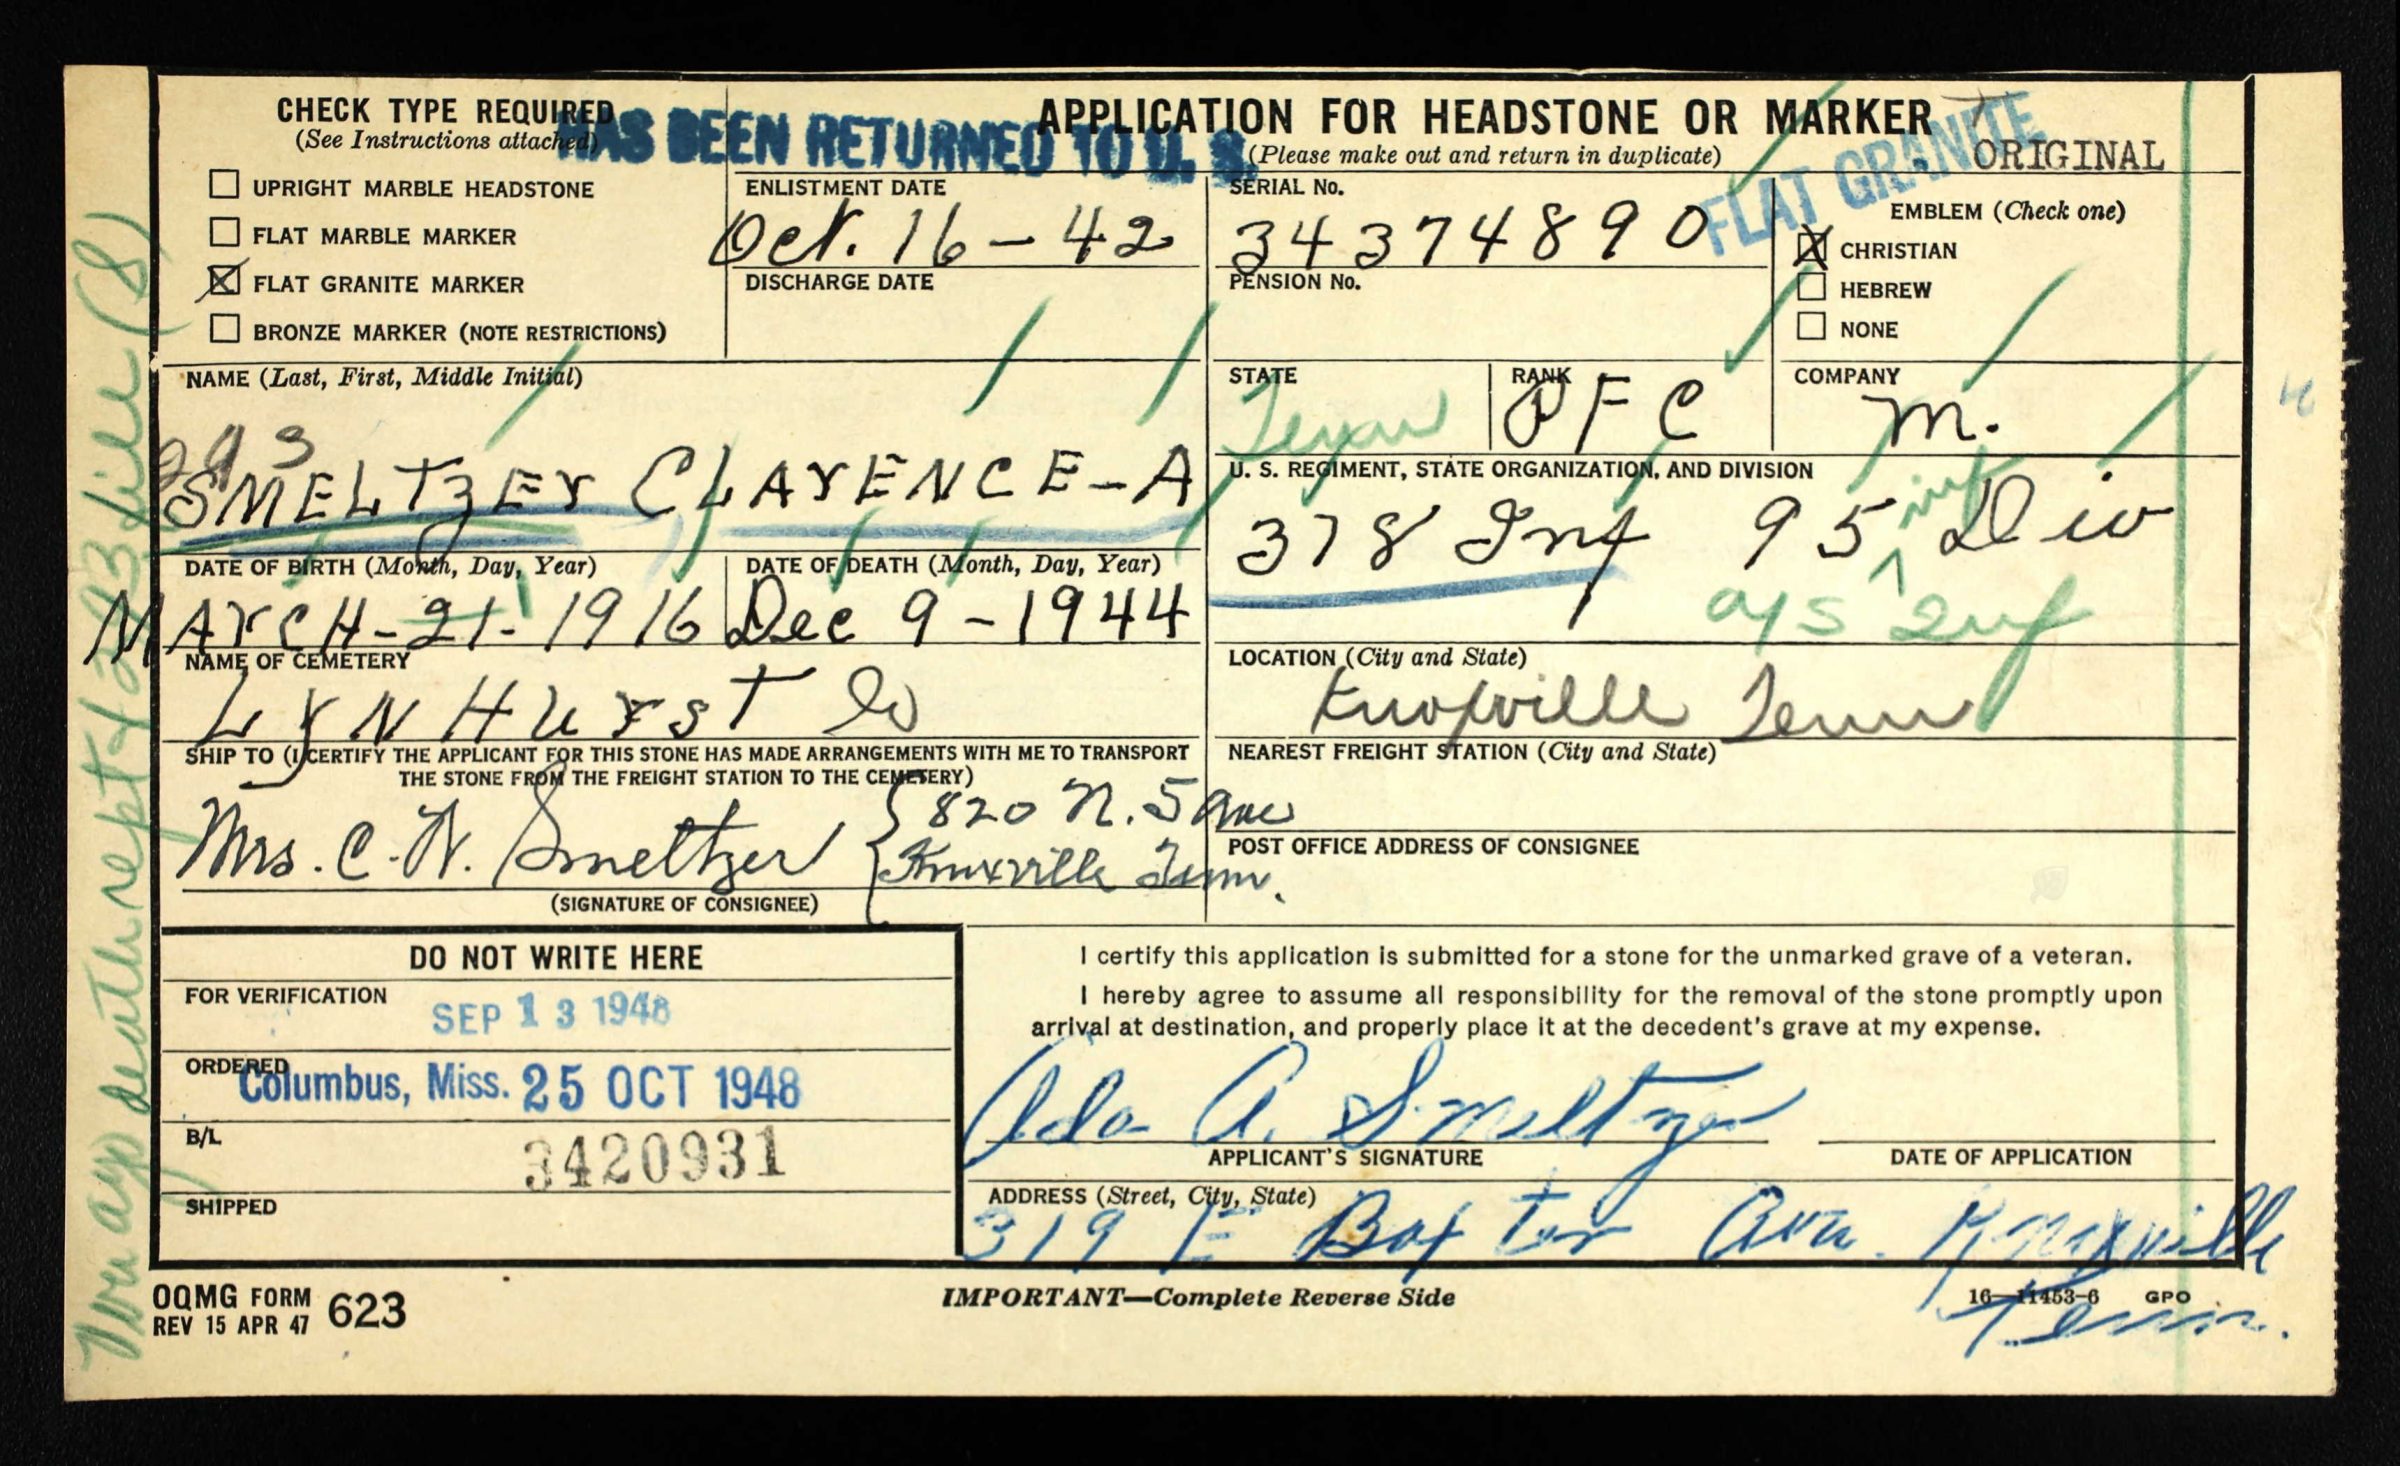 CHECK TYPE REQUIRED
(See Instructions attached)
☐ UPRIGHT MARBLE HEADSTONE
☐ FLAT MARBLE MARKER
☒ FLAT GRANITE MARKER
☐ BRONZE MARKER (NOTE RESTRICTIONS)
HAS BEEN RETURNED TO U. S.
APPLICATION FOR HEADSTONE OR MARKER
(Please make out and return in duplicate)
ORIGINAL
FLAT GRANITE
ENLISTMENT DATE
Oct. 16 - 42
DISCHARGE DATE
SERIAL No.
34374890
PENSION No.
EMBLEM (Check one)
☒ CHRISTIAN
☐ HEBREW
☐ NONE
NAME (Last, First, Middle Initial)
293
SMELTZER CLARENCE-A
STATE
Tenn
RANK
PFC
COMPANY
M.
U. S. REGIMENT, STATE ORGANIZATION, AND DIVISION
378 Inf 95 inf Div
a/s Inf
DATE OF BIRTH (Month, Day, Year)
MARCH-21-1916
DATE OF DEATH (Month, Day, Year)
Dec 9-1944
NAME OF CEMETERY
LYNHURST
LOCATION (City and State)
Knoxville Tenn
SHIP TO (I CERTIFY THE APPLICANT FOR THIS STONE HAS MADE ARRANGEMENTS WITH ME TO TRANSPORT
THE STONE FROM THE FREIGHT STATION TO THE CEMETERY)
Mrs. C. N. Smeltzer
820 N. 5 Ave
Knoxville Tenn.
(SIGNATURE OF CONSIGNEE)
NEAREST FREIGHT STATION (City and State)
POST OFFICE ADDRESS OF CONSIGNEE
DO NOT WRITE HERE
FOR VERIFICATION
SEP 13 1948
ORDERED
Columbus, Miss. 25 OCT 1948
B/L
3420931
SHIPPED
I certify this application is submitted for a stone for the unmarked grave of a veteran.
I hereby agree to assume all responsibility for the removal of the stone promptly upon
arrival at destination, and properly place it at the decedent's grave at my expense.
Ada A. Smeltzer
APPLICANT'S SIGNATURE
DATE OF APPLICATION
ADDRESS (Street, City, State)
319 E Baxter Ave. Knoxville
Tenn.
OQMG FORM 623
REV 15 APR 47
IMPORTANT—Complete Reverse Side
16—11453-6 GPO
death rept 293 file (S)